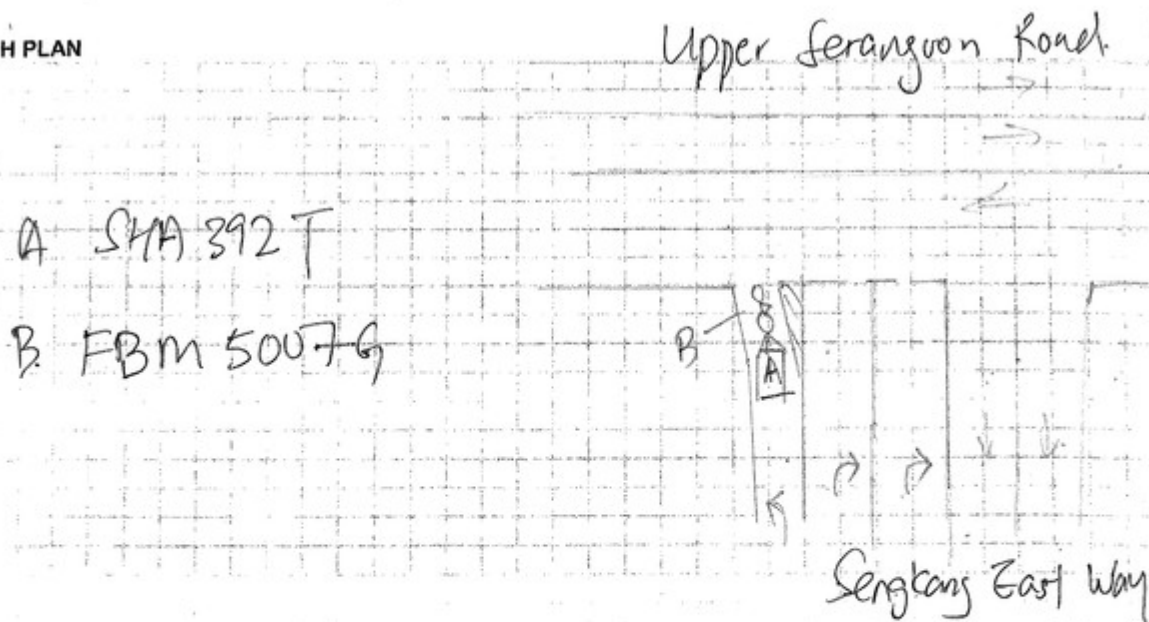 H PLAN
Upper Serangoon Road.
A SHA 392 T
B. FBM 5007 G
B
A
Sengkang East Way